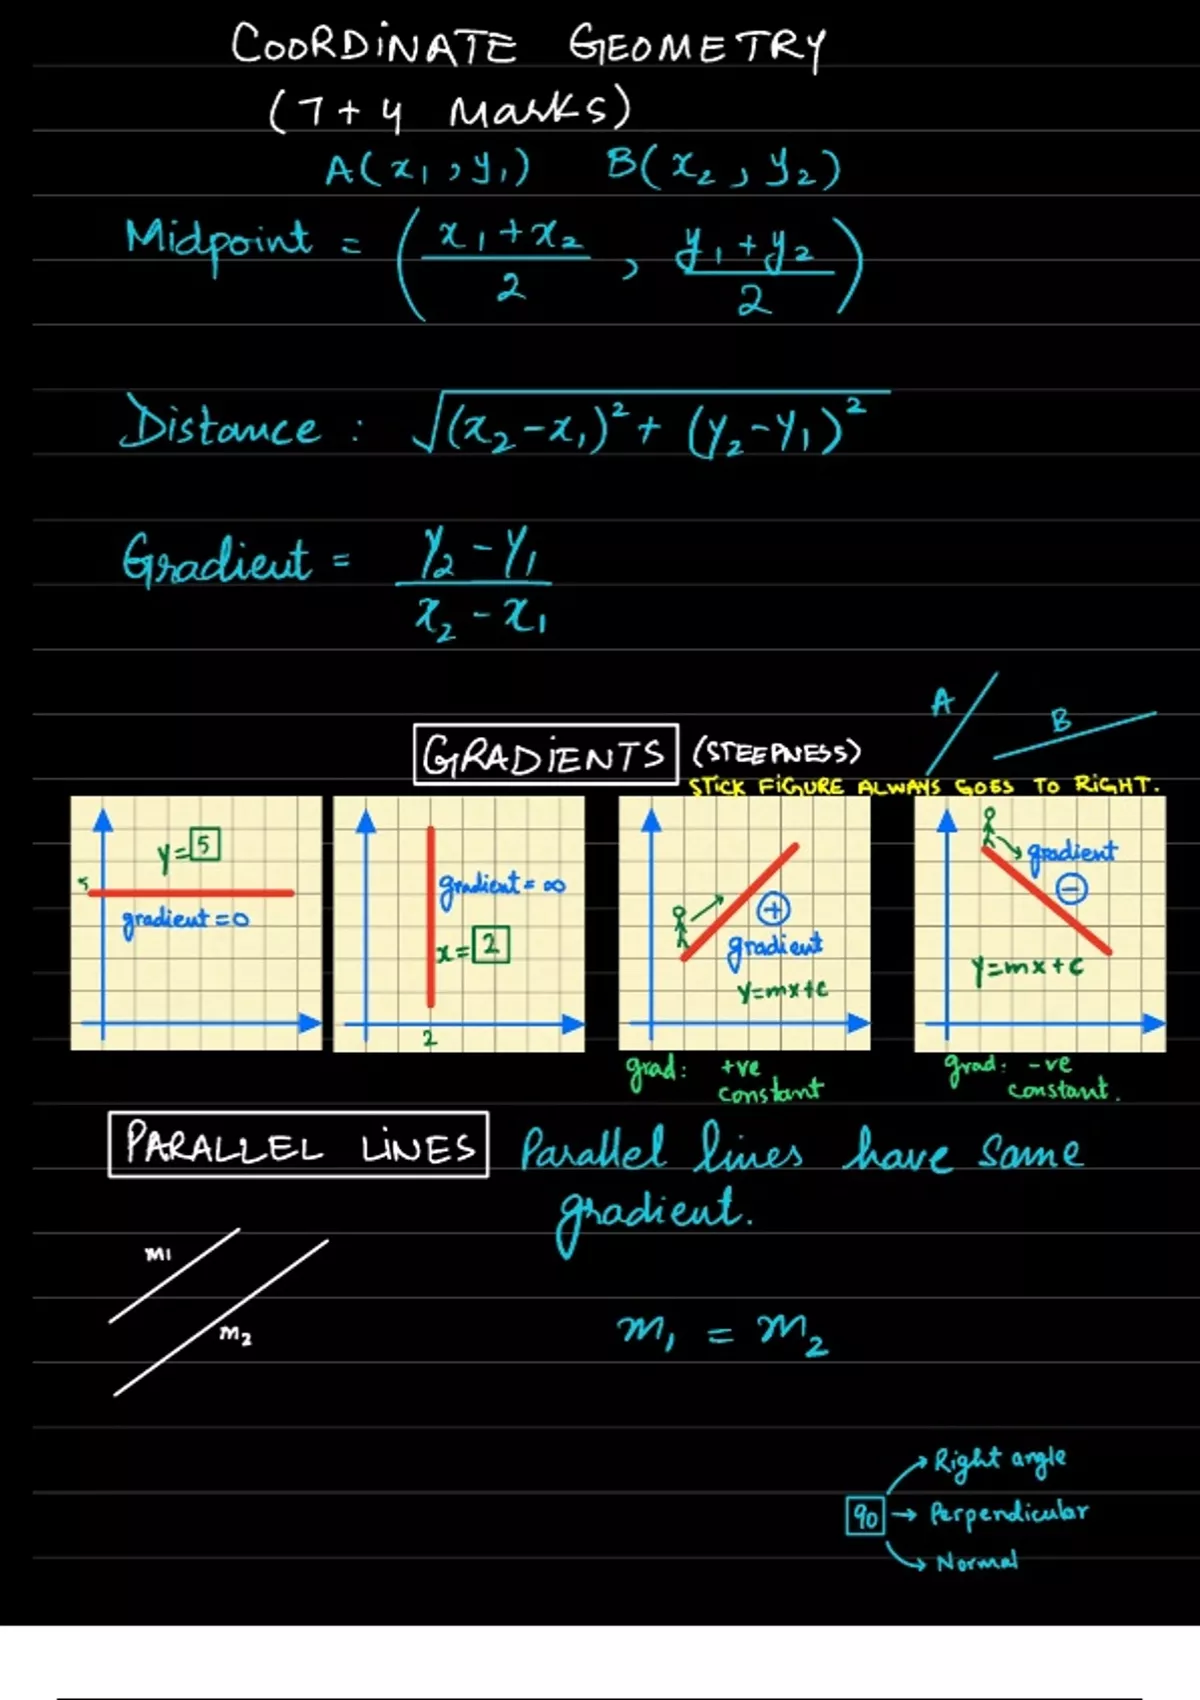 COORDINATE GEOMETRY
(7+4 Marks)
A(x₁, y₁) B(x₂, y₂)
Midpoint = ( x₁+x₂ / 2 , y₁+y₂ / 2 )
Distance : √(x₂-x₁)² + (y₂-y₁)²
Gradient = y₂-y₁ / x₂-x₁
A B
GRADIENTS (STEEPNESS)
STICK FIGURE ALWAYS GOES TO RIGHT.
y=5
5
gradient=0
gradient=∞
x=2
2
+
gradient
y=mx+c
grad: +ve
constant
gradient
-
y=mx+c
grad: -ve
constant.
PARALLEL LINES Parallel lines have same
gradient.
m1
m2
m₁ = m₂
Right angle
90 → Perpendicular
Normal